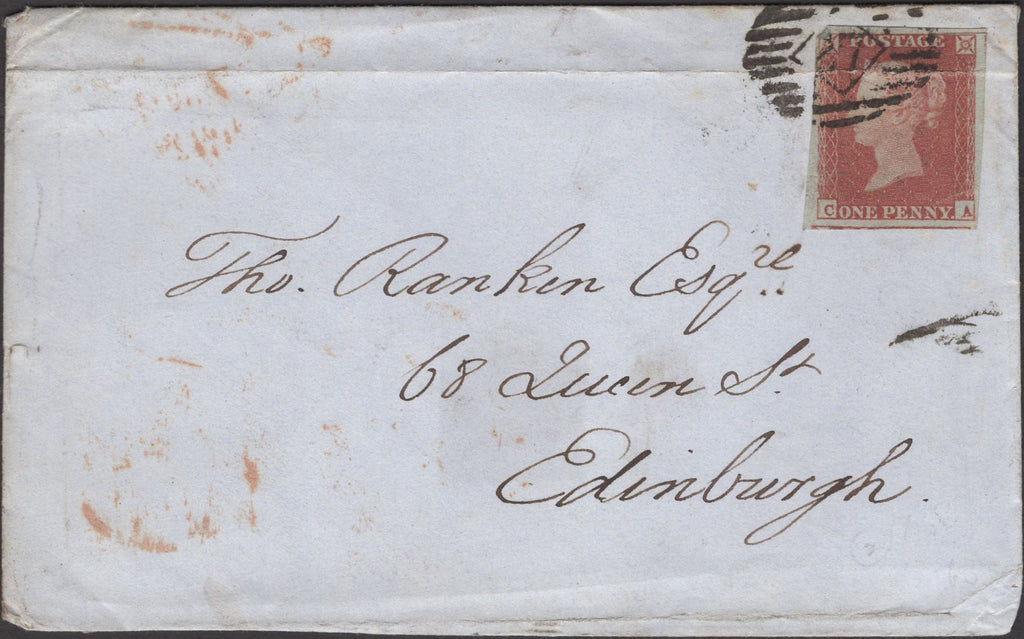 POSTAGE
C ONE PENNY. A
Tho. Ranken Esqre
68 Queen St
Edinburgh.